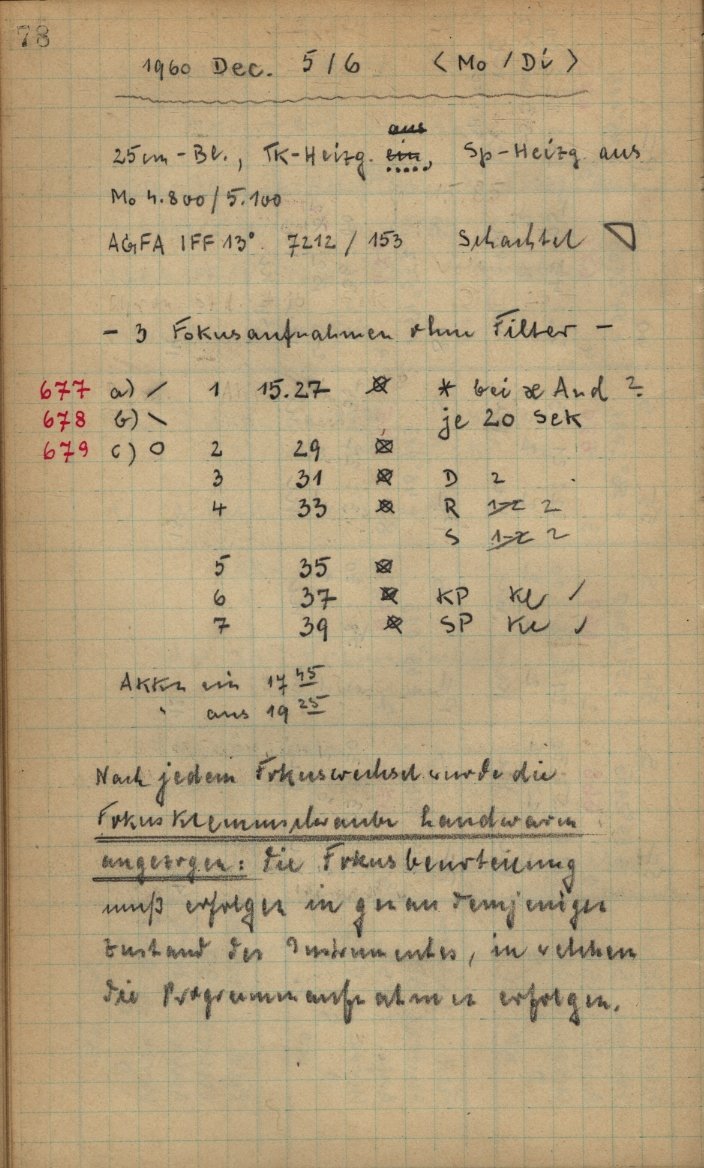 78
1960 Dec. 5/6 < Mo / Di >
25cm-Bl., TK-Heizg. aus ein, Sp-Heizg aus
Mo 4.800/5.100
AGFA IFF 13° 7212 / 153 Schachtel
- 3 Fokusaufnahmen ohne Filter -
677 a) / 1 15.27 * bei ϰ And 2
678 b) \ je 20 Sek
679 c) O 2 29
3 31 D 2
4 33 R 1-2 2
S 1-2 2
5 35
6 37 KP Kl ✓
7 39 SP Kl ✓
AKKu ein 17 45
" aus 19 25
Nach jedem Fokuswechsel wurde die
Fokusklemmschraube handwarm
angezogen: Die Fokusbeurteilung
muß erfolgen in genau demjenigen
Zustand des Instrumentes, in welchem
die Programmaufnahmen erfolgen.